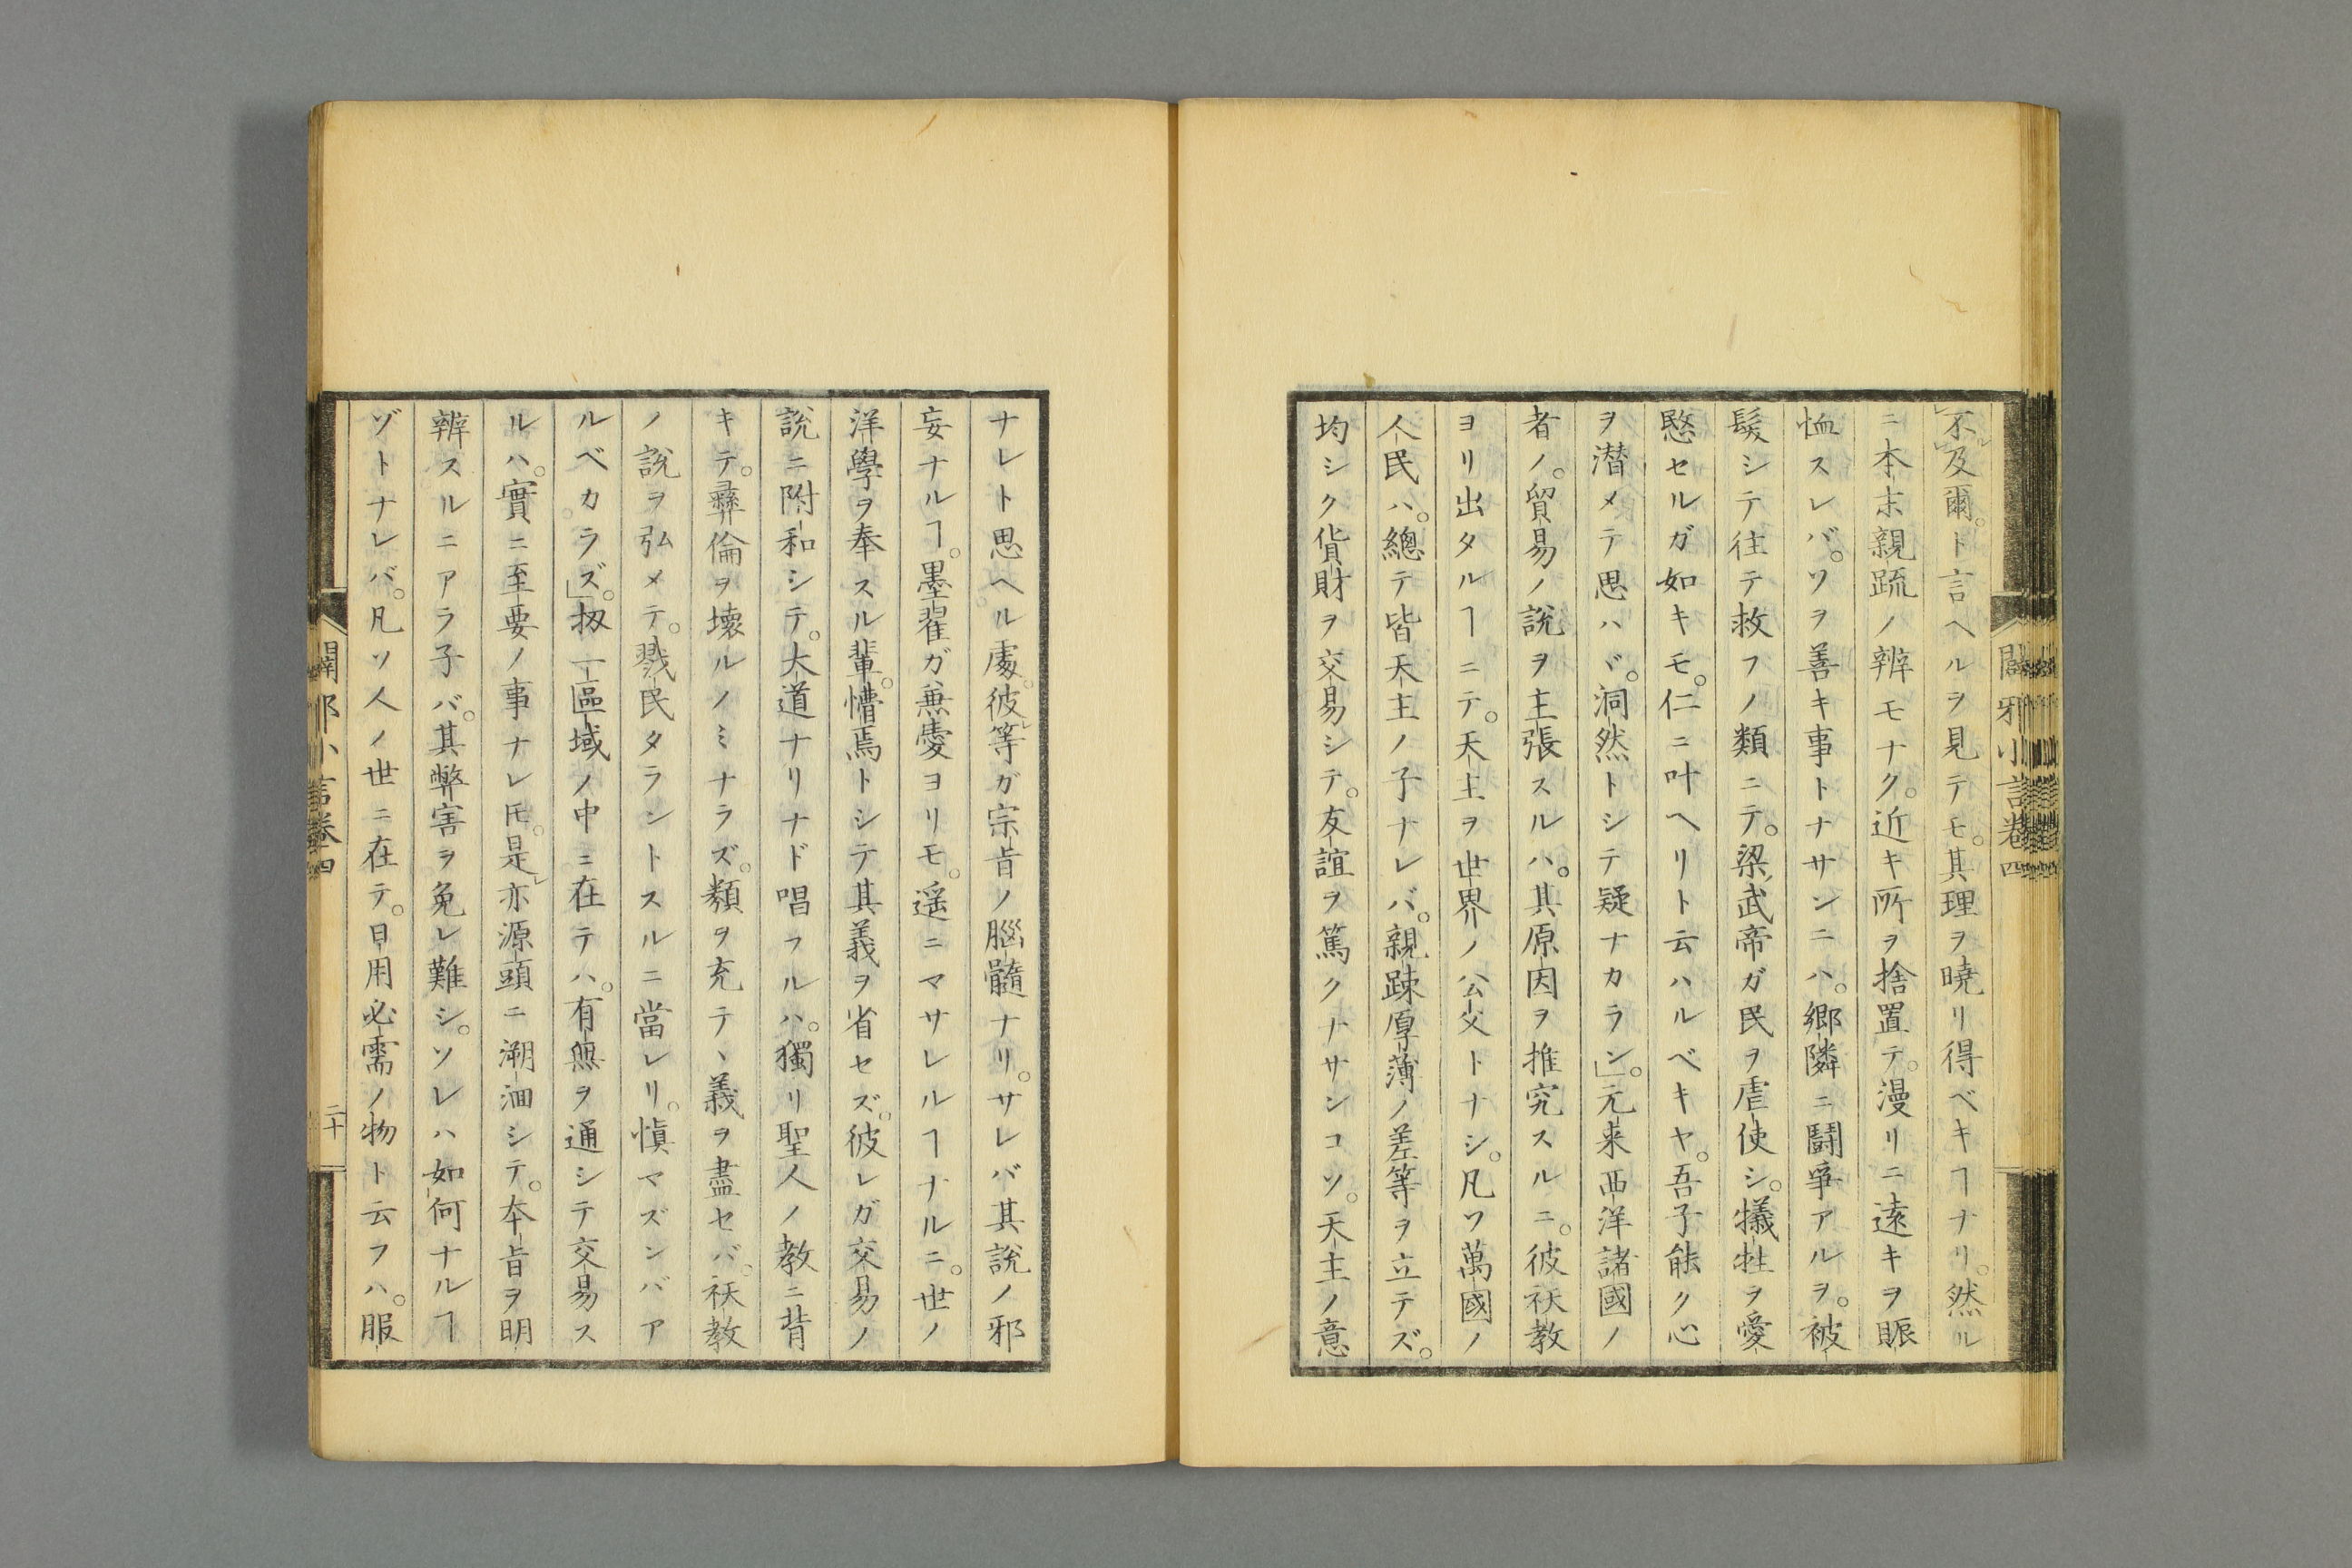 不㆑及㆑爾。ト言ヘルヲ見テモ。其理ヲ曉リ得ベキヿナリ。然ル
ニ本末親疏ノ辨モナク。近キ所ヲ捨置テ。漫リニ遠キヲ賑
恤スレバ。ソヲ善キ事トナサンニハ。鄉隣ニ鬪爭アルヲ。被
髮シテ往テ救フノ類ニテ。梁武帝ガ民ヲ虐使シ。犧牲ヲ愛
愍セルガ如キモ。仁ニ叶ヘリト云ハルベキヤ。吾子能ク心
ヲ潛メテ思ハヾ。洞然トシテ疑ナカラン」。元来西洋諸國ノ
者ノ。貿易ノ說ヲ主張スルハ。其原因ヲ推究スルニ。彼祅教
ヨリ出タルヿニテ。天主ヲ世界ノ公父トナシ。凡ソ萬國ノ
人民ハ。總テ皆天主ノ子ナレバ。親踈厚薄ノ差等ヲ立テズ。
均シク貨財ヲ交易シテ。友誼ヲ篤クナサンコソ。天主ノ意
闢邪小言卷四
ナレト思ヘル處。彼等ガ宗旨ノ腦髓ナリ。サレバ其說ノ邪
妄ナルヿ。墨翟ガ兼愛ヨリモ。遥ニマサレルヿナルニ。世ノ
洋學ヲ奉スル輩。懵焉トシテ其義ヲ省セズ。彼レガ交易ノ
說ニ附和シテ。大道ナリナド唱フルハ。獨リ聖人ノ教ニ背
キテ。彝倫ヲ壞ルノミナラズ。類ヲ充テヽ義ヲ盡セバ。祅教
ノ說ヲ弘メテ。戮民タラントスルニ當レリ。愼マズンバア
ルベカラズ」。扨一區域ノ中ニ在テハ。有無ヲ通シテ交易ス
ルハ。實ニ至要ノ事ナレ𪜈。是亦源頭ニ溯洄シテ。本旨ヲ明
辨スルニアラ子バ。其弊害ヲ免レ難シ。ソレハ如何ナルヿ
ゾトナレバ。凡ソ人ノ世ニ在テ。日用必需ノ物ト云フハ。服
闢邪小言卷四
二十